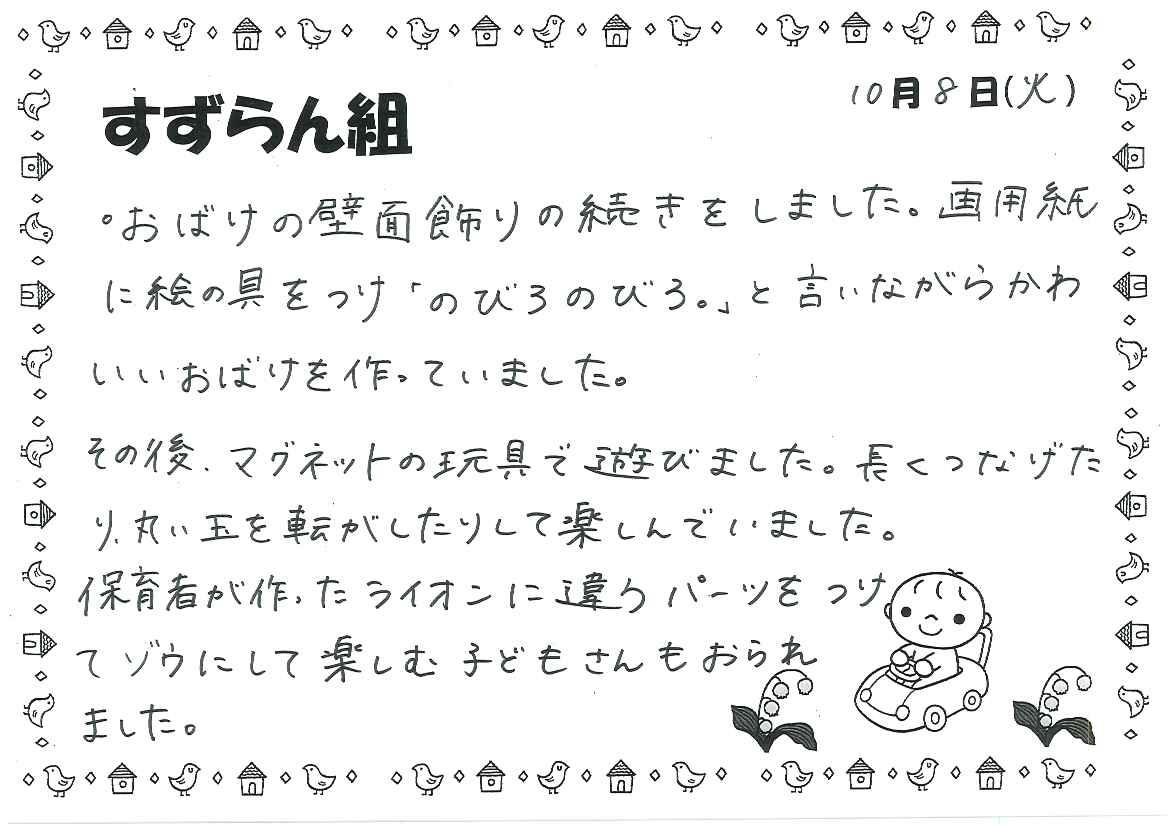 すずらん組
10月8日(火)
°おばけの壁面飾りの続きをしました。画用紙
に絵の具をつけ「のびろのびろ。」と言いながらかわ
いいおばけを作っていました。
その後、マグネットの玩具で遊びました。長くつなげた
り、丸い玉を転がしたりして楽しんでいました。
保育者が作ったライオンに違うパーツをつけ
てゾウにして楽しむ子どもさんもおられ
ました。